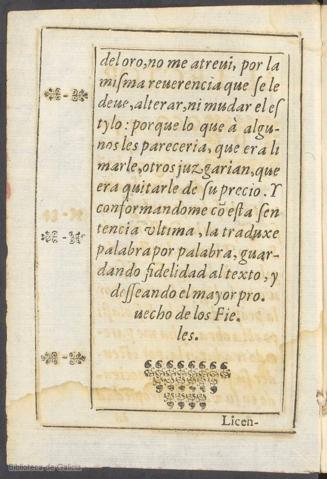 del oro, no me atreui, por la
misma reuerencia que se le
deue, alterar, ni mudar el es
tylo: porque lo que à algu-
nos les pareceria, que era li
marle, otros juzgarian, que
era quitarle de su precio. Y
conformandome cõ esta sen
tencia vltima, la traduxe
palabra por palabra, guar-
dando fidelidad al texto, y
desseando el mayor pro.
uecho de los Fie.
les.
Licen-
Biblioteca de Galicia